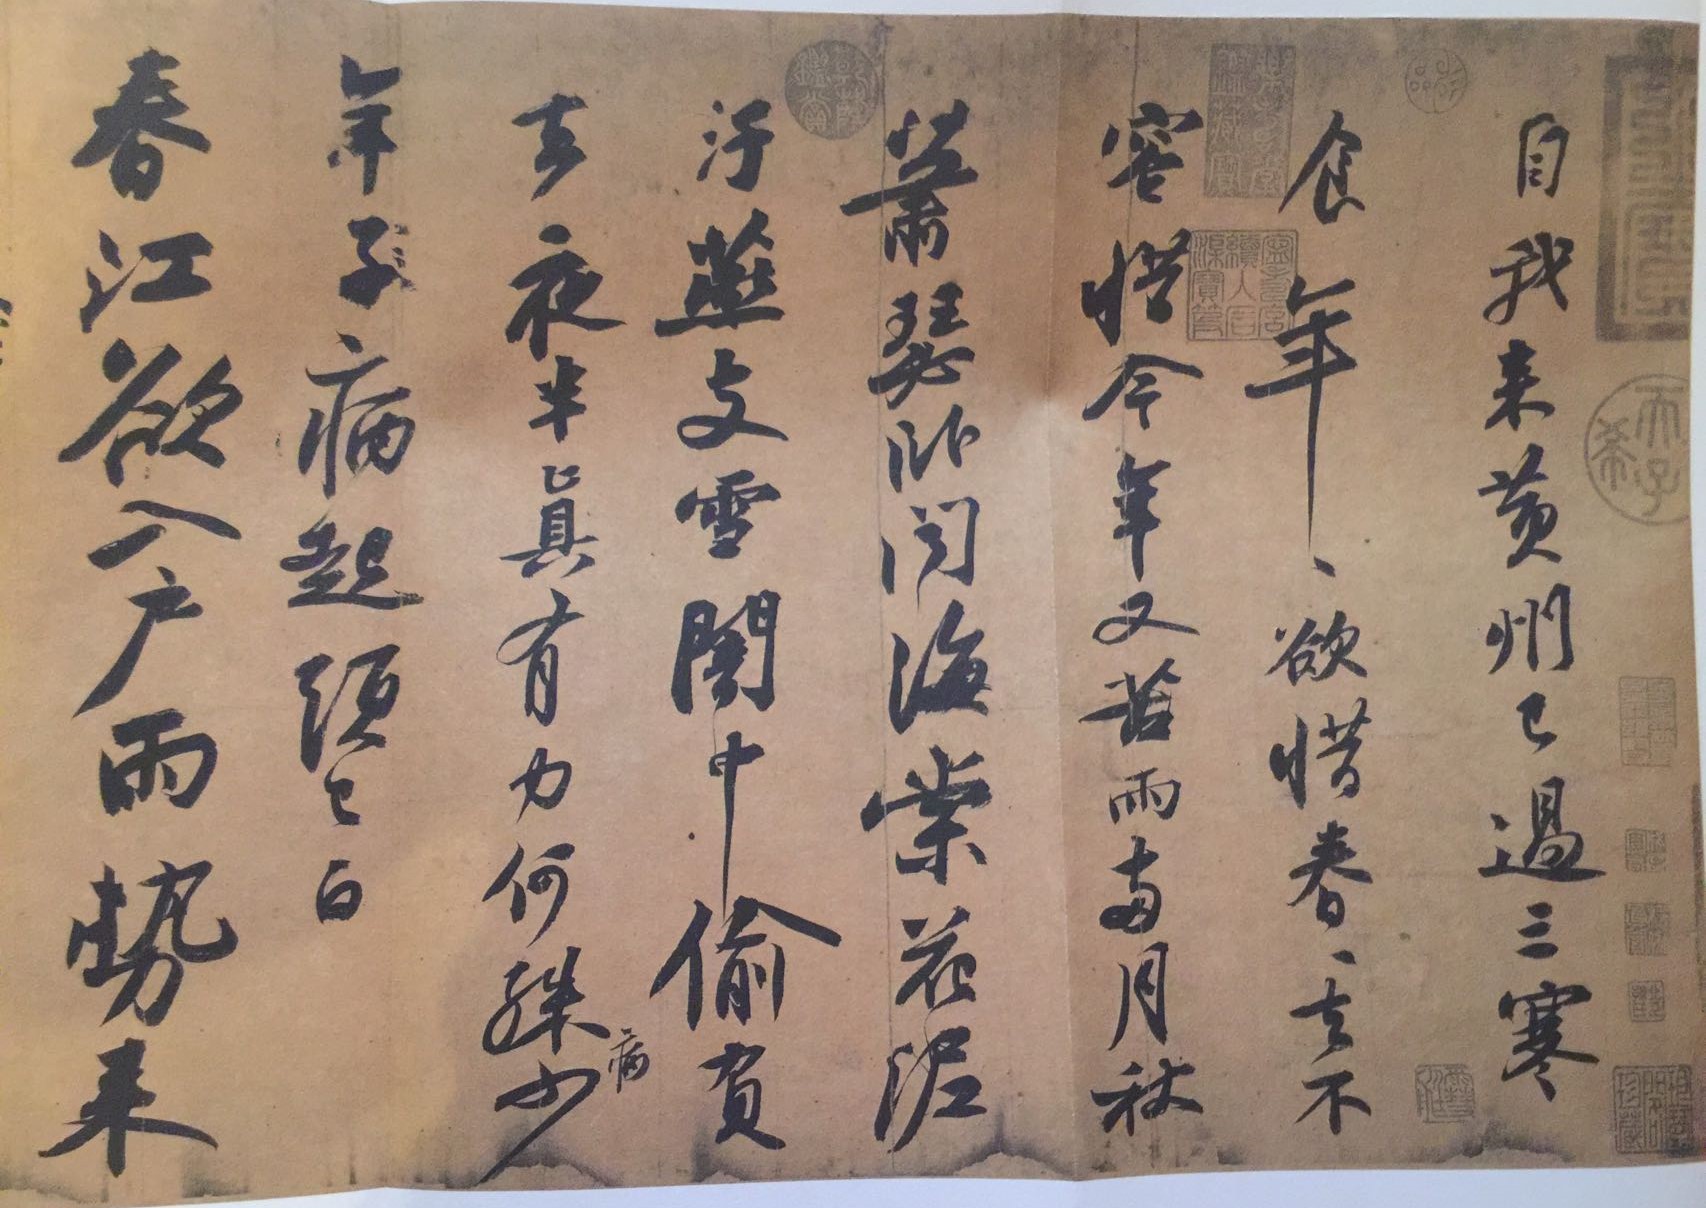 自我来黄州已過三寒
食年々欲惜春々去不
容惜今年又苦雨兩月秋
蕭瑟卧聞海棠花泥
汙燕支雪闇中偷負
去夜半真有力何殊少
病
年子病起頭已白
春江欲入户雨勢来
天子
希